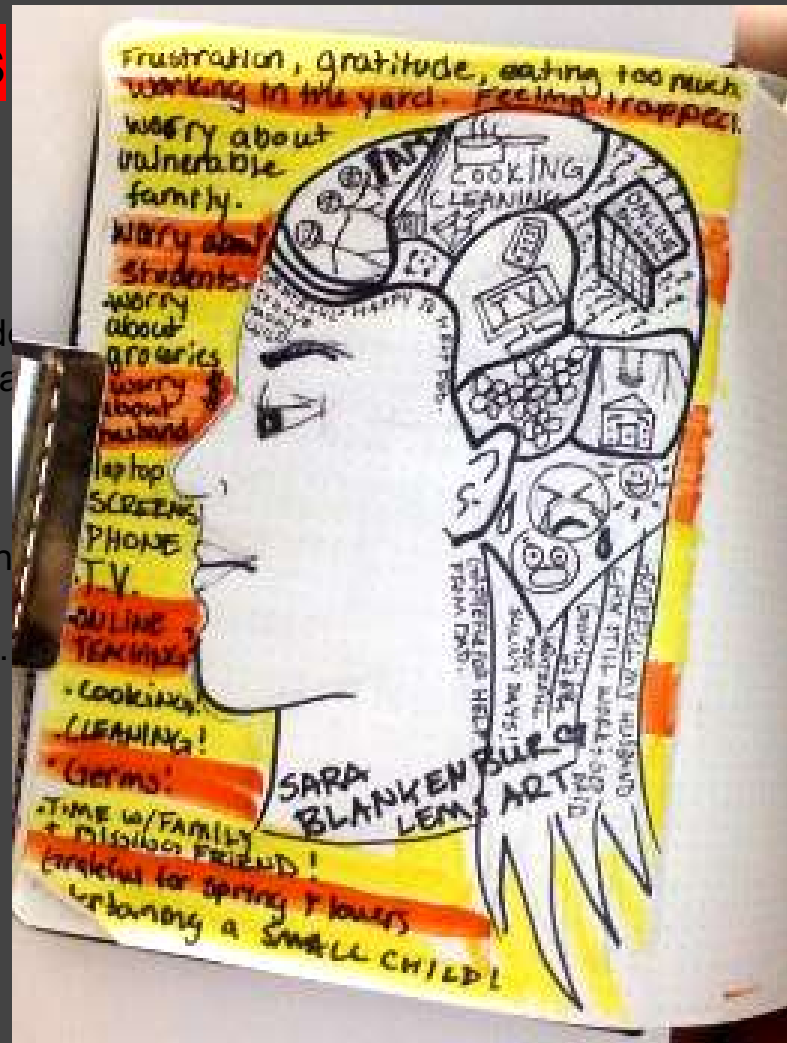 Frustration, gratitude, eating too much
working in the yard. Feeling trapped.
worry about
vulnerable
family.
Worry about
students.
worry
about
groceries
worry $
about
husband
laptop
SCREENS
PHONE
T.V.
ONLINE
TEACHING
COOKING!
CLEANING!
Germs!
TIME w/FAMILY
+ Missing FRIENDS!
Grateful for spring Flowers
a SMALL CHILD!
COOKING
CLEANING
ONLINE
TV
HAPPY TO
GRATEFUL FOR HELP
FROM DAD.
SUNNY DAYS!
CAN STILL WORK
MY HUSBAND
SARA
BLANKENBURG
LEMS ART